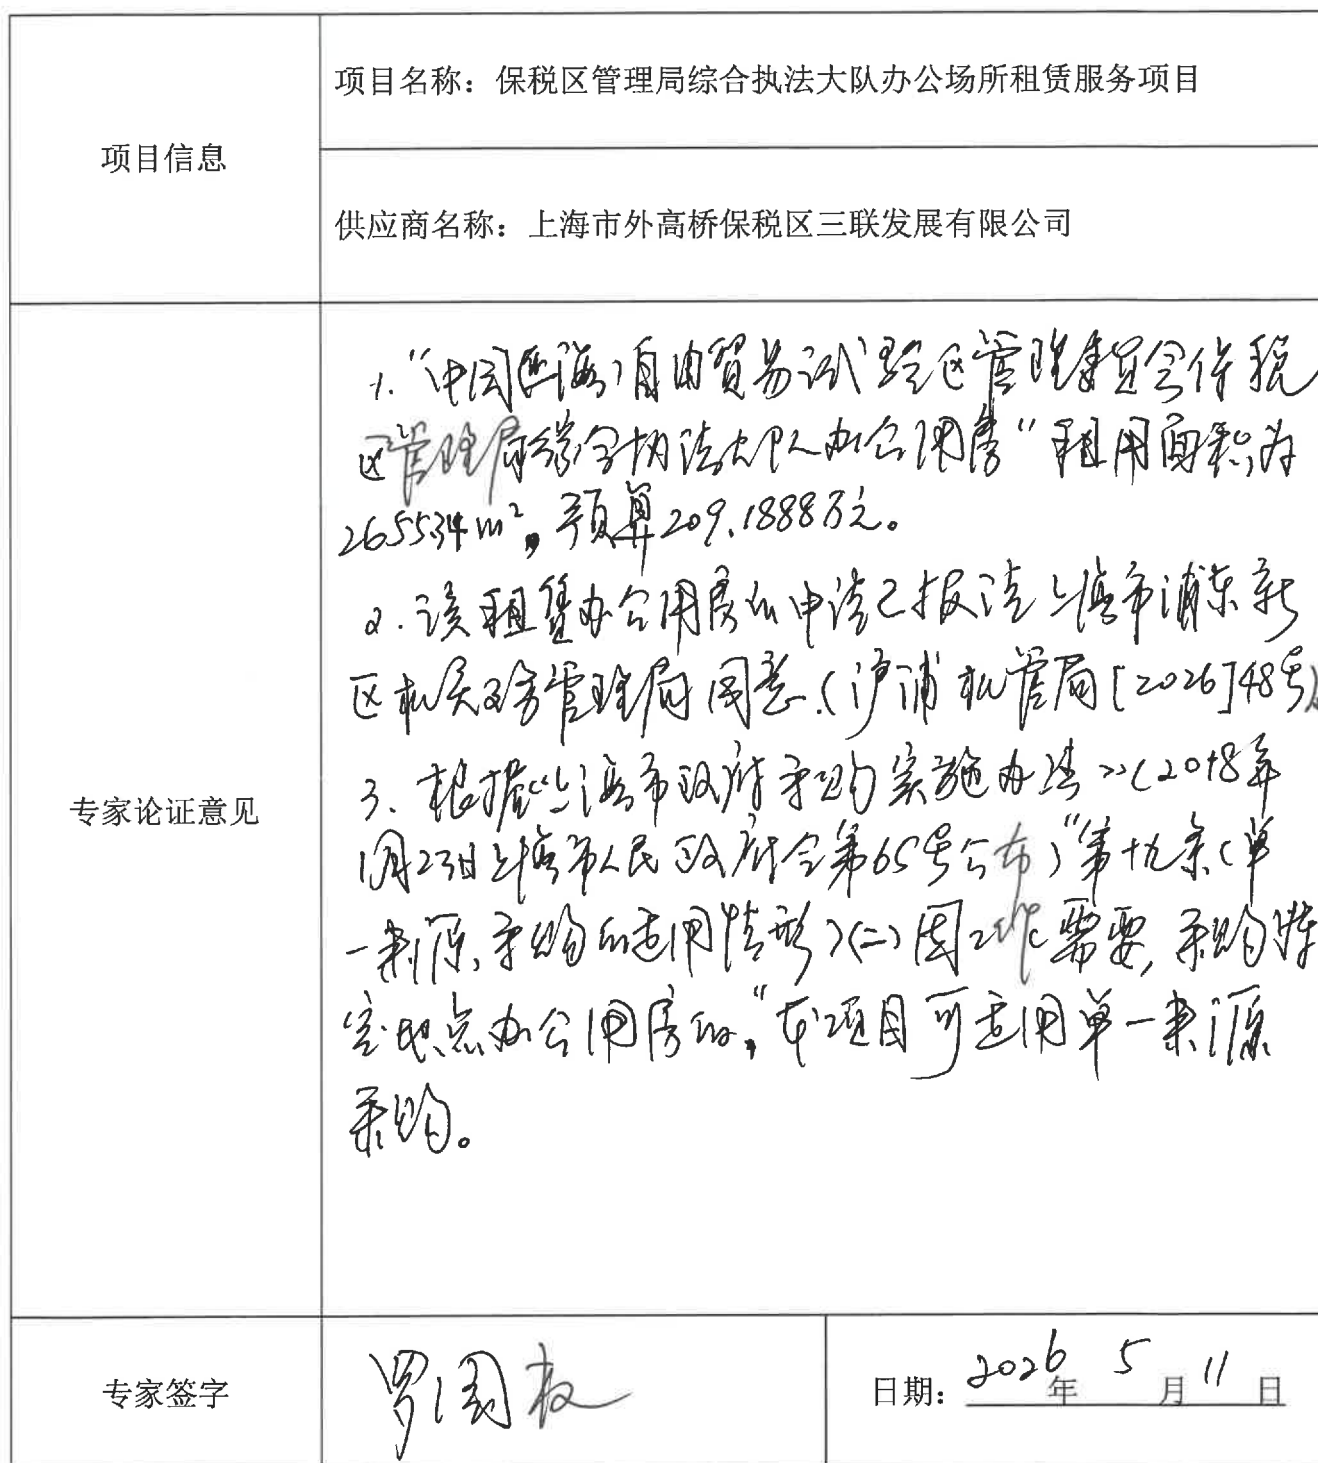 项目信息
项目名称：保税区管理局综合执法大队办公场所租赁服务项目
供应商名称：上海市外高桥保税区三联发展有限公司
专家论证意见
1.“中国(上海)自由贸易试验区管理委员会保税
区管理局综合执法大队办公用房”租用面积为
265534m²，预算209.1888万元。
2.该租赁办公用房的申请已报请上海市浦东新
区机关事务管理局同意.(沪浦机管局[2026]48号)
3.根据《上海市政府采购实施办法》(2018年
1月23日上海市人民政府令第65号公布)“第十九条(单
一来源采购的适用情形)(二)因工作需要,采购特
定地点办公用房的，”本项目可适用单一来源
采购。
专家签字
罗国
日期：2026年5月11日